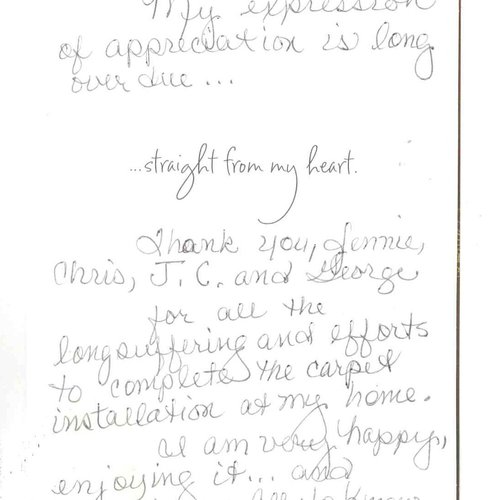 My expression
of appreciation is long
over due...
...straight from my heart.
Thank you, Jennie,
Chris, J. C. and George
for all the
longsuffering and efforts
to complete the carpet
installation at my home.
I am very happy,
enjoying it... and